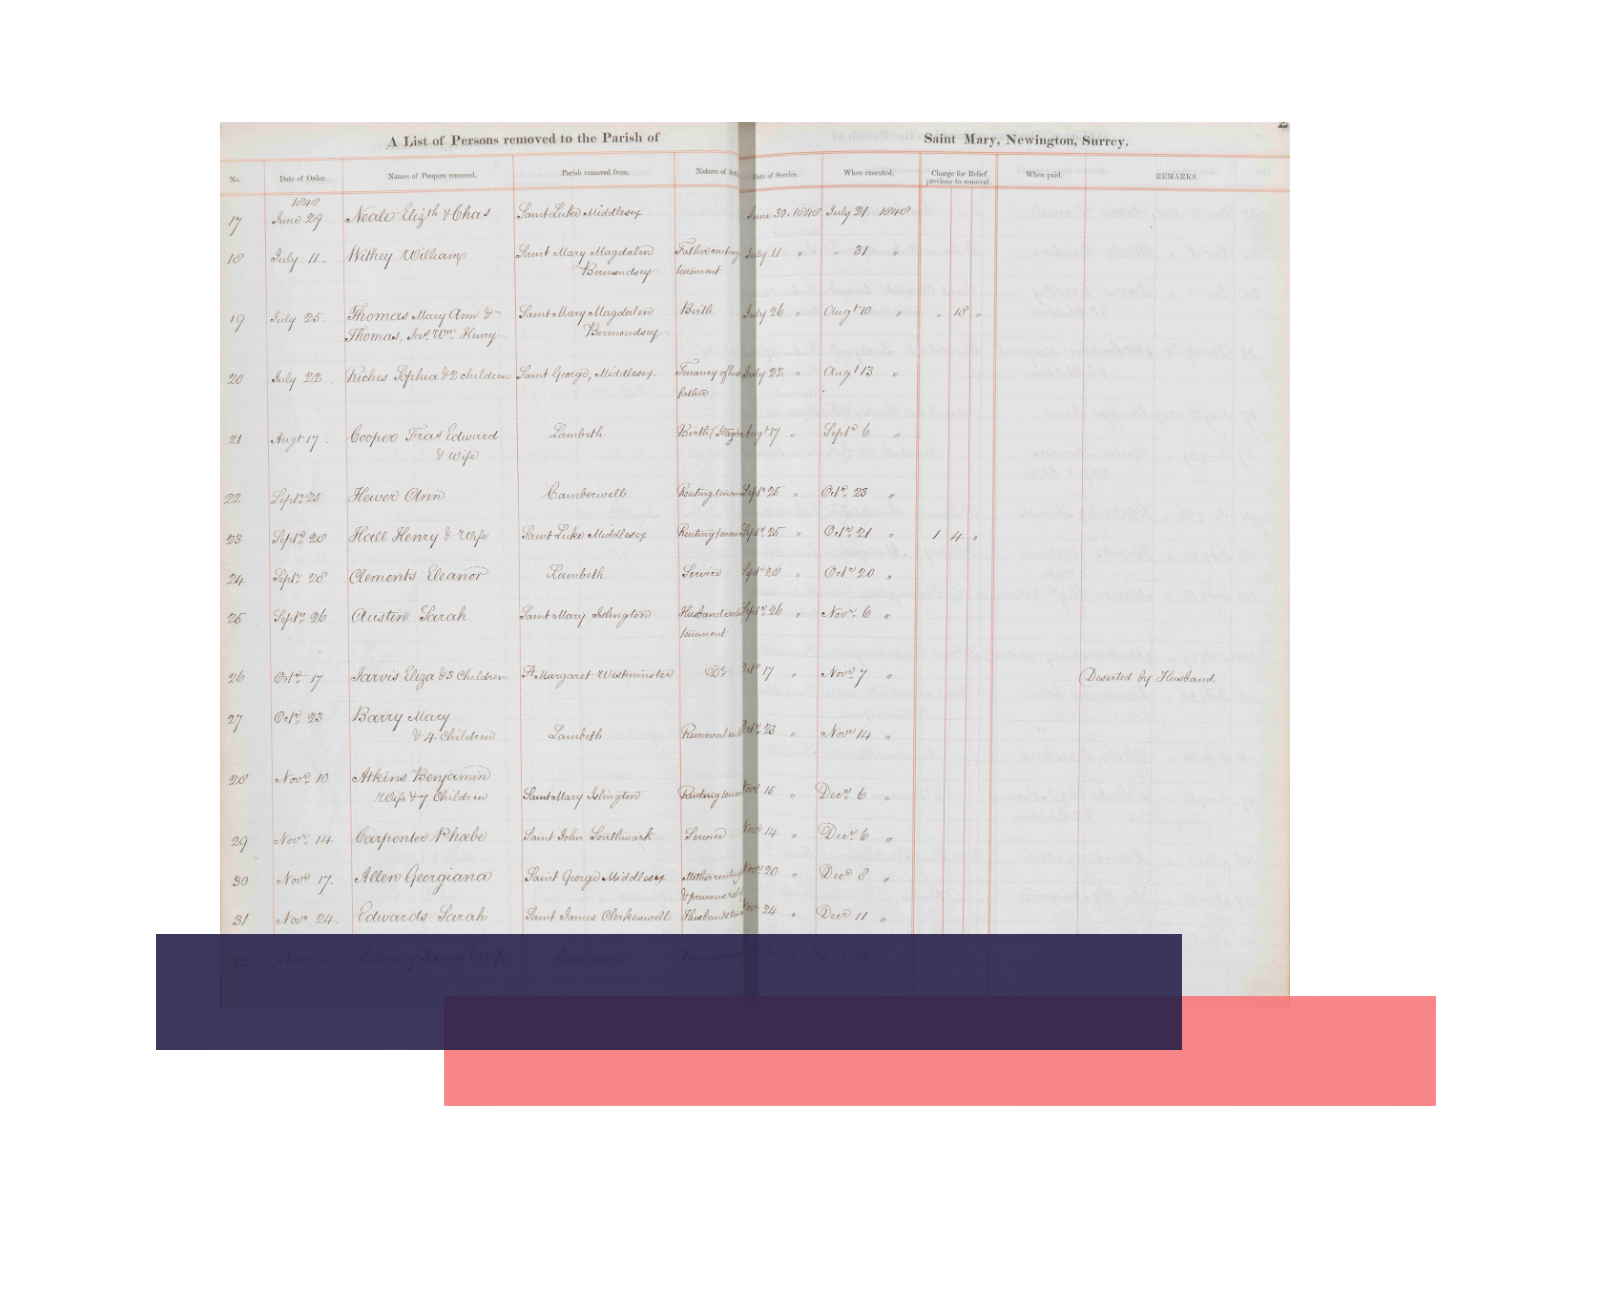 A List of Persons removed to the Parish of Saint Mary, Newington, Surrey.
No. Date of Order. Names of Paupers removed. Parish removed from. Nature of Date of Service. When executed. Charge for Relief previous to removal. When paid. REMARKS.
1848
17 June 29 Neale Elizth & Chas Saint Luke Middlesex June 30. 1848 July 21. 1848
18 July 11. Withey William Saint Mary Magdalen Father renting July 11 " " 31 "
Bermondsey tenement
19 July 25. Thomas Mary Ann & Saint Mary Magdalen Birth July 26 " Augt 10 " " 18 "
Thomas, Jas. Wm. Henry Bermondsey
20 July 22. Riches Sophia & 2 children Saint George, Middlesex Tenancy of July 22 " Augt 13 "
father
21 Augt 17. Cooper Fras Edward Lambeth Birth Augt 17 " Septr 6 "
& Wife
22 Septr 25 Hewer Ann Camberwell Renting Septr 25 " Octr 23 "
23 Septr 28 Hall Henry & Wife Saint Luke Middlesex Renting Septr 25 " Octr 21 " 1 4 "
24 Septr 28 Clements Eleanor Lambeth Service Septr 28 " Octr 20 "
25 Septr 26 Austin Sarah Saint Mary Islington Husband Septr 26 " Novr 6 "
tenement
26 Octr 17 Jarvis Eliza & 3 Children St Margaret Westminster Do Octr 17 " Novr 7 " Deserted by Husband
27 Octr 23 Barry Mary
& 4 Children Lambeth Removal Octr 23 " Novr 14 "
28 Novr 10 Atkins Benjamin
Wife & 7 Children Saint Mary Islington Renting Novr 15 " Decr 6 "
29 Novr 14. Carpenter Phoebe Saint John Southwark Service Novr 14 " Decr 6 "
30 Novr 17. Allen Georgiana Saint George Middlesex Mother renting Novr 20 " Decr 8 "
& previous
31 Novr 24. Edwards Sarah Saint James Clerkenwell Husbands Novr 24 " Decr 11 "
32 Novr 28 Delaney James & Wife Camberwell